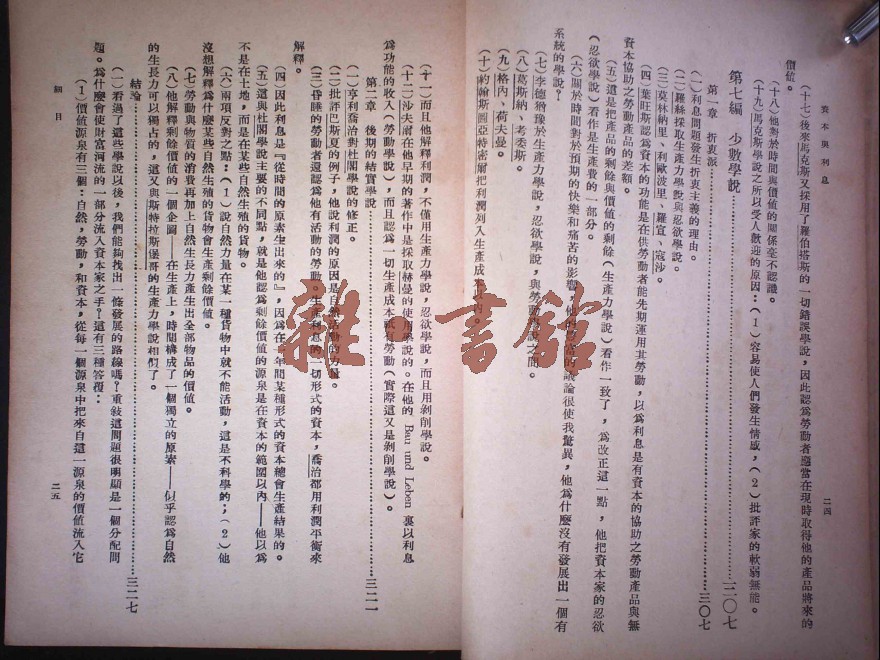 資本與利息
二四
(十七)後來馬克斯又採用了羅伯塔斯的一切錯誤學說,因此認爲勞動者應當在現時取得他的產品將來的
價値。
(十八)他對於時間與價値的關係毫不認識。
(十九)馬克斯學說之所以受人歡迎的原因:(1)容易使人們發生情感,(2)批評家的軟弱無能。
第七編 少數學說……三〇七
第一章 折衷派……三〇七
(一)利息問題發生折衷主義的理由。
(二)羅絲採取生產力學說與忍欲學說。
(三)莫林納里、利歐波里、羅宣、寇沙。
(四)葉旺斯認爲資本的功能是在供勞動者能先期運用其勞動,以爲利息是有資本的協助之勞動產品與無
資本協助之勞動產品的差額。
(五)這是把產品的剩餘與價値的剩餘(生產力學說)看作一致了,爲改正這一點,他把資本家的忍欲
(忍欲學說)看作是生產費的一部分。
(六)關於時間對於預期的快樂和痛苦的影響,他的議論很使我驚異,他爲什麼沒有發展出一個有
系統的學說?
(七)李德猶豫於生產力學說,忍欲學說,與勞動學說之間。
(八)葛斯納、考委斯。
(九)格內、荷夫曼。
(十)約翰斯圖亞特密爾把利潤列入生產成本以內
(十一)而且他解釋利潤,不僅用生產力學說,忍欲學說,而且用剝削學說。
(十二)沙夫爾在他早期的著作中是採取赫曼的使用學說的。在他的 Bau und Leben 裏以利息
爲功能的收入(勞動學說),而且認爲一切生產成本祇有勞動(實際這又是剝削學說)。
第二章 後期的結實學說……三二一
(一)亨利喬治對杜閣學說的修正。
(二)批評巴斯夏的例子,他說利潤的原因是自然活動的力量。
(三)昏睡的勞動者還認爲他有活動的勞動。生產利息的一切形式的資本,喬治都用利潤平衡來
解釋。
(四)因此利息是『從時間的原素生出來的』,因爲在一年間某種形式的資本總會生產結果的。
(五)這與杜閣學說主要的不同點,就是他認爲剩餘價値的源泉是在資本的範圍以內——他以爲
不是在土地,而是在某些自然生殖的貨物。
(六)兩項反對之點:(1)說自然力量在某一種貨物中就不能活動,這是不科學的;(2)他
沒想解釋爲什麼某些自然生殖的貨物會生產剩餘價値。
(七)勞動與物質的消費再加上自然生長力產生出全部物品的價値。
(八)他解釋剩餘價値的一個企圖——在生產上,時間構成了一個獨立的原素——似乎認爲自然
的生長力可以獨占的,這又與斯特拉斯堡哥的生產力學說相似了。
結論……三二七
(一)看過了這些學說以後,我們能夠找出一條發展的路線嗎?重敍這問題很明顯是一個分配問
題。爲什麼會使財富河流的一部分流入資本家之手?這有三種答覆:
(1)價値源泉有三個:自然,勞動,和資本,從每一個源泉中把來自這一源泉的價値流入它
細目
二五
雜·書館